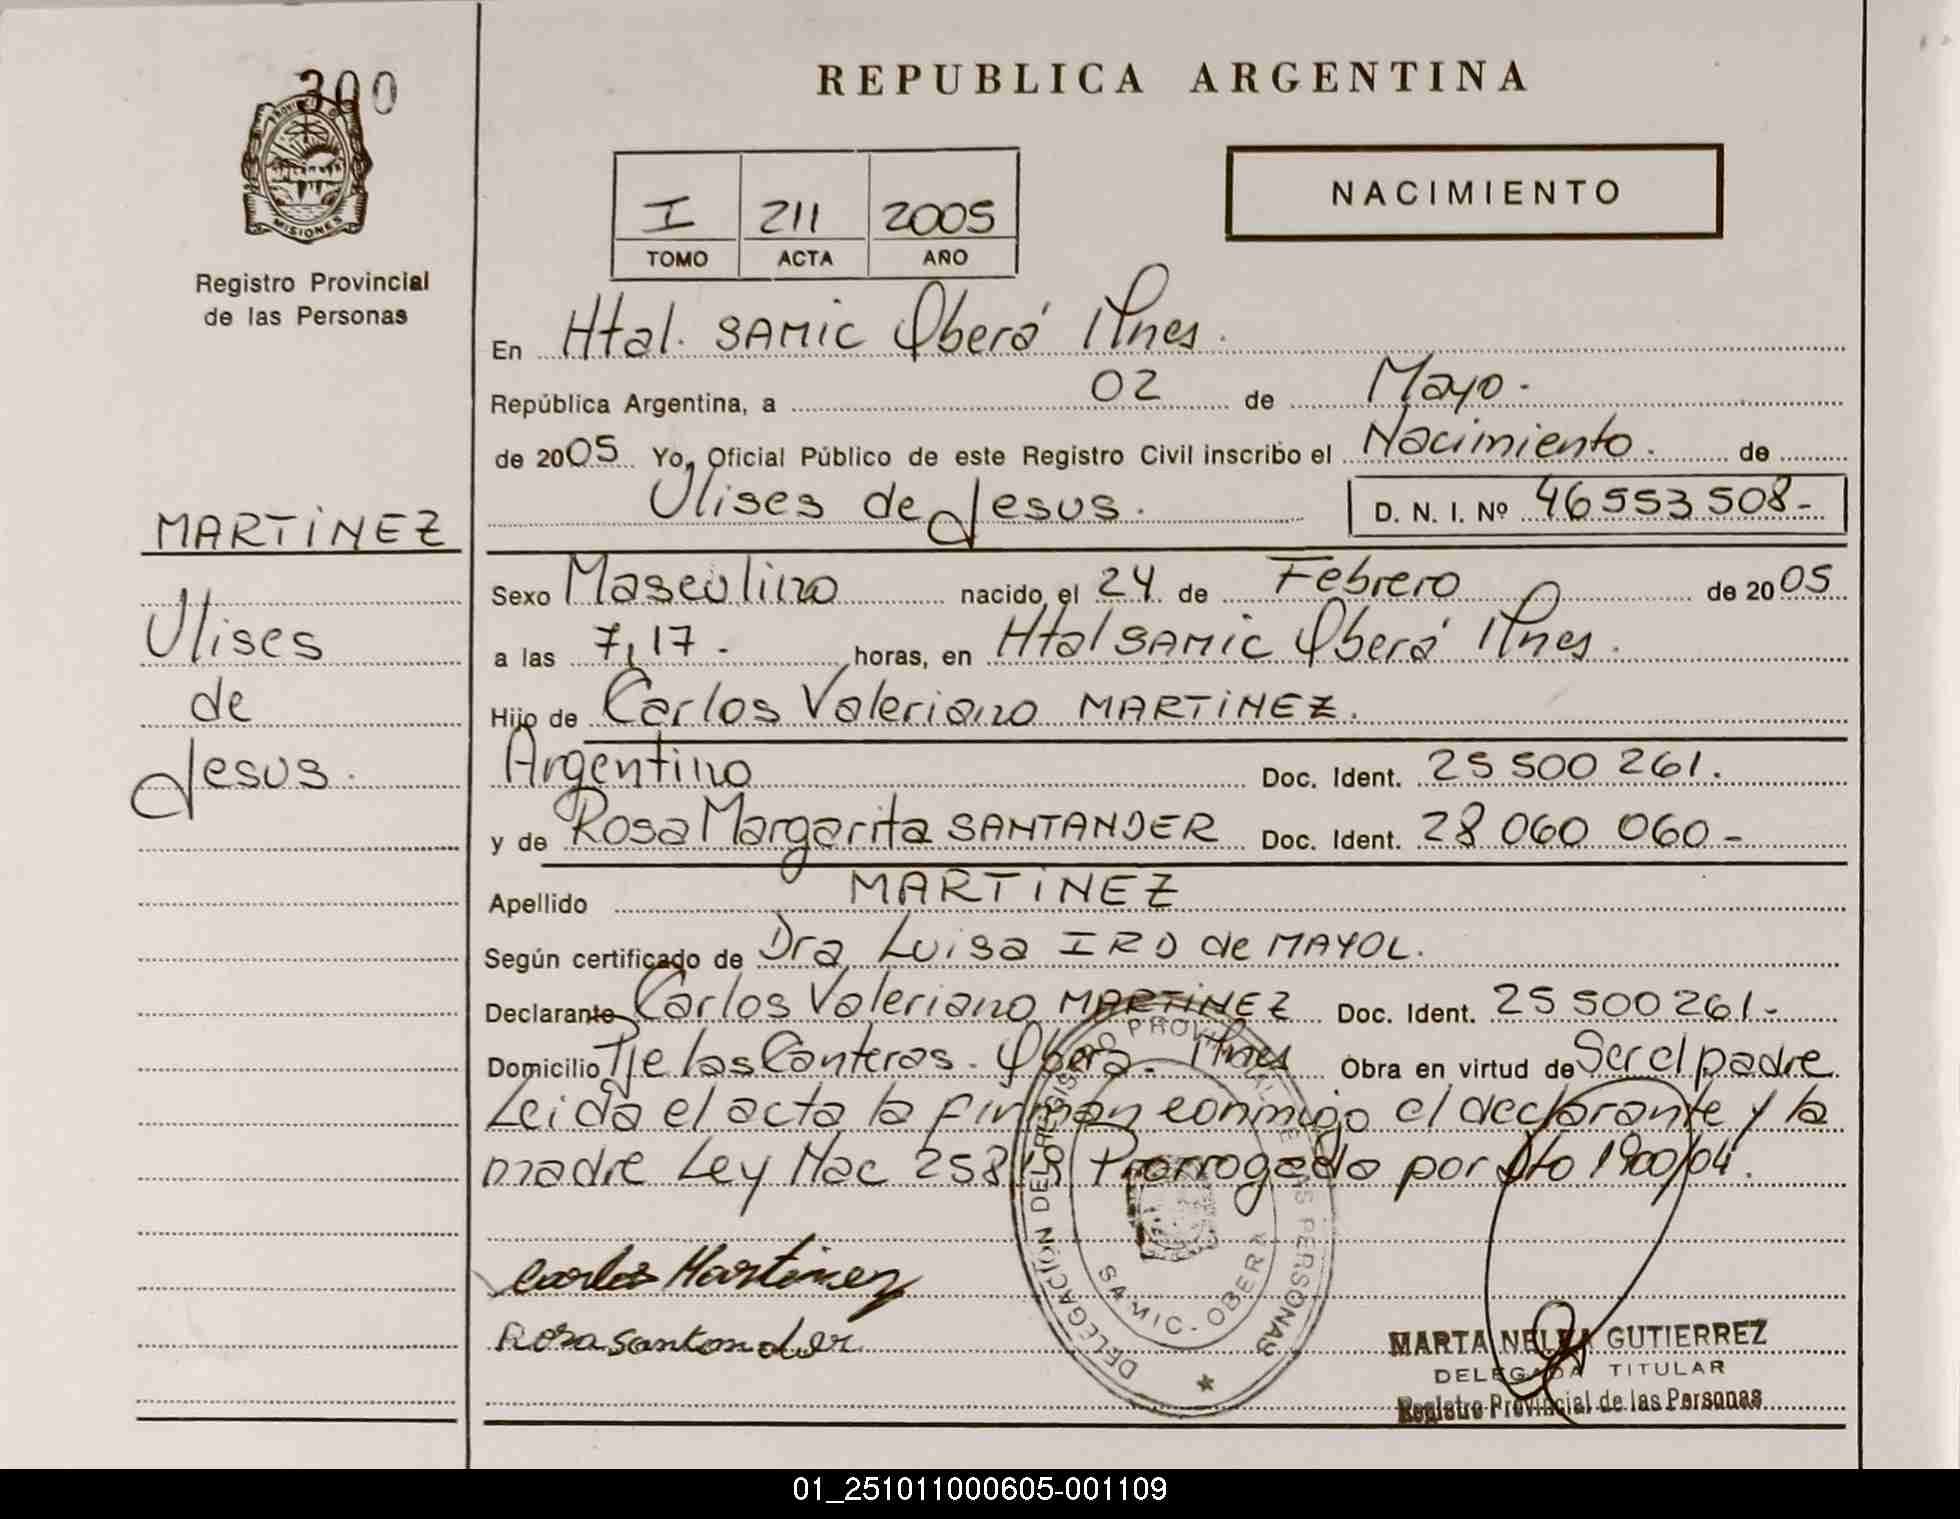 300
PROVINCIA DE
MISIONES
Registro Provincial
de las Personas
MARTINEZ
Ulises
de
Jesus.
REPUBLICA ARGENTINA
I 211 2005
TOMO ACTA AÑO
NACIMIENTO
En Htal. SAMIC Oberá Mnes.
República Argentina, a 02 de Mayo.
de 2005 Yo, Oficial Público de este Registro Civil inscribo el Nacimiento. de
Ulises de Jesus. D. N. I. Nº 46553508-
Sexo Masculino nacido el 24 de Febrero de 2005
a las 7,17. horas, en Htal SAMIC Oberá Mnes.
Hijo de Carlos Valeriano MARTINEZ.
Argentino Doc. Ident. 25 500 261.
y de Rosa Margarita SANTANDER Doc. Ident. 28 060 060-
Apellido MARTINEZ
Según certificado de Dra Luisa IRD de MAYOL.
Declarante Carlos Valeriano MARTINEZ Doc. Ident. 25 500 261-
Domicilio Pje las Canteras. Oberá. Mnes Obra en virtud de Ser el padre
Leida el acta la firman conmigo el declarante y la
madre Ley Nac 25819 Prorrogada por Dto 1900/04.
DELEGACIÓN DEL REGISTRO PROVINCIAL DE LAS PERSONAS
SAMIC - OBERA
Carlos Martinez
Rosa Santander
MARTA NELDA GUTIERREZ
DELEGADA TITULAR
Registro Provincial de las Personas
01_251011000605-001109